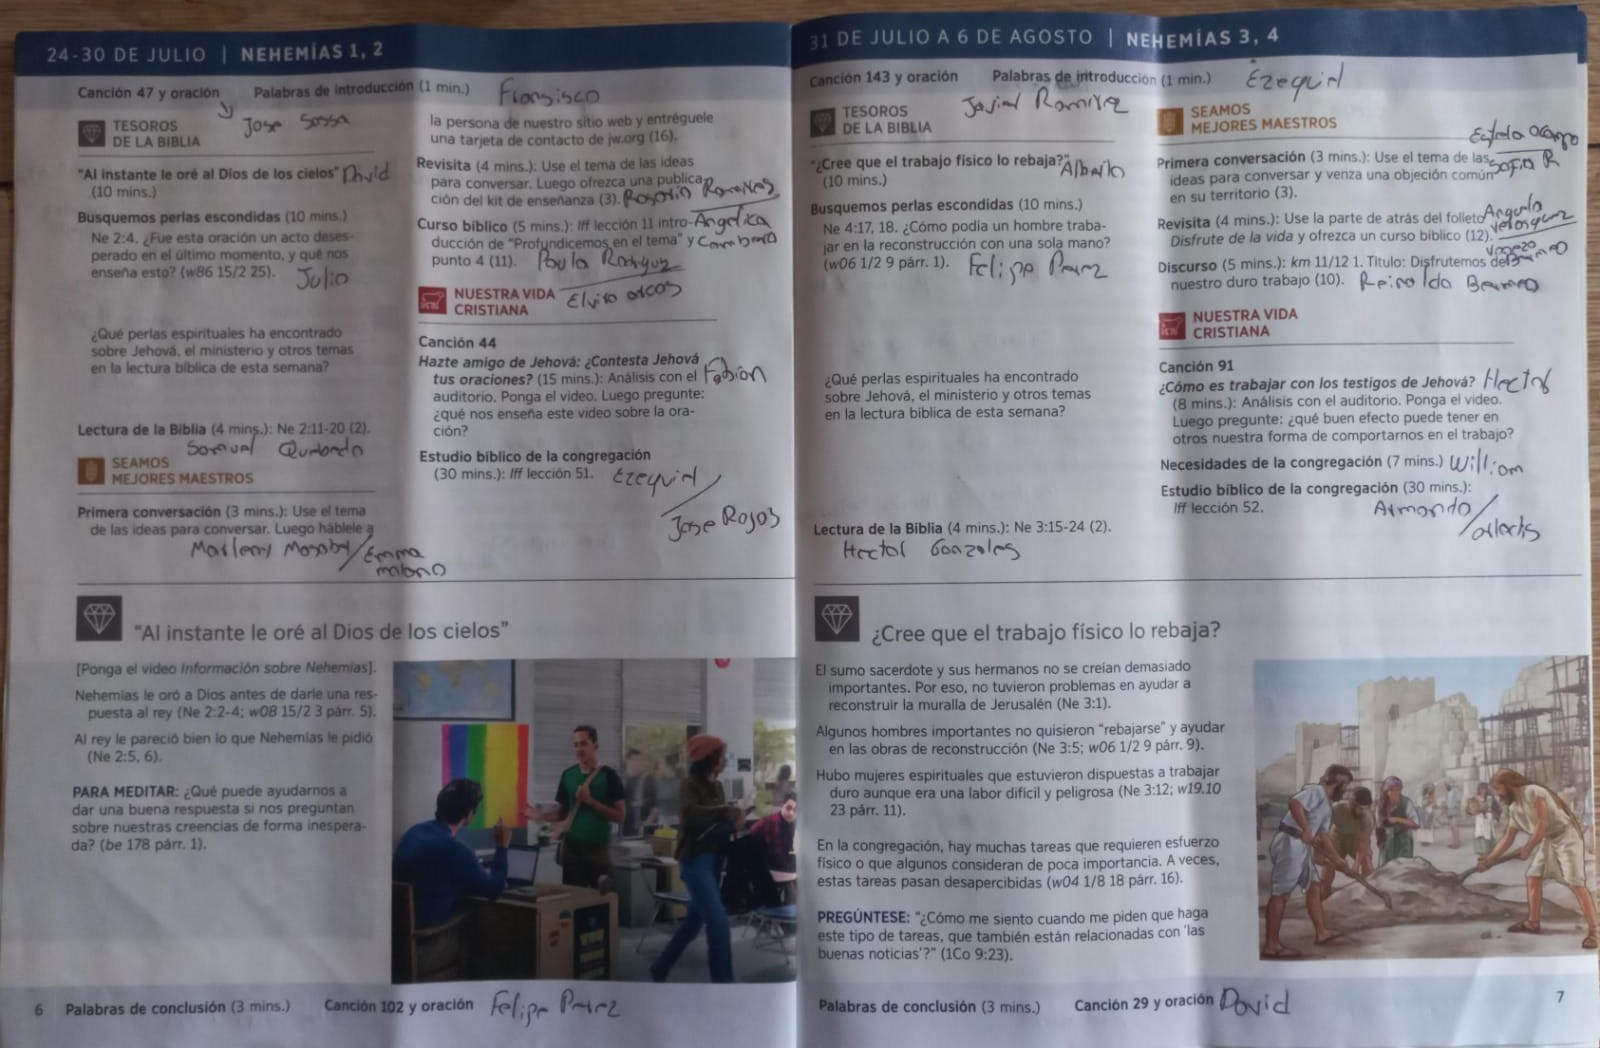 24-30 DE JULIO | NEHEMÍAS 1, 2
Canción 47 y oración Palabras de introducción (1 min.) Fransisco
Jose Sossa
TESOROS
DE LA BIBLIA
"Al instante le oré al Dios de los cielos" David
(10 mins.)
Busquemos perlas escondidas (10 mins.)
Ne 2:4. ¿Fue esta oración un acto deses-
perado en el último momento, y qué nos
enseña esto? (w86 15/2 25). Julio
¿Qué perlas espirituales ha encontrado
sobre Jehová, el ministerio y otros temas
en la lectura bíblica de esta semana?
Lectura de la Biblia (4 mins.): Ne 2:11-20 (2).
Samuel
SEAMOS
MEJORES MAESTROS
Primera conversación (3 mins.): Use el tema
de las ideas para conversar. Luego háblele a
Marleny / Emma
la persona de nuestro sitio web y entréguele
una tarjeta de contacto de jw.org (16).
Revisita (4 mins.): Use el tema de las ideas
para conversar. Luego ofrezca una publica-
ción del kit de enseñanza (3). Rosario
Curso bíblico (5 mins.): lff lección 11 intro- Angelica
ducción de "Profundicemos en el tema" y
punto 4 (11). Paula
NUESTRA VIDA
CRISTIANA
Elvira
Canción 44
Hazte amigo de Jehová: ¿Contesta Jehová
tus oraciones? (15 mins.): Análisis con el Fabian
auditorio. Ponga el video. Luego pregunte:
¿qué nos enseña este video sobre la ora-
ción?
Estudio bíblico de la congregación
(30 mins.): lff lección 51. Ezequiel /
Jose Rojas
"Al instante le oré al Dios de los cielos"
[Ponga el video Información sobre Nehemías].
Nehemías le oró a Dios antes de darle una res-
puesta al rey (Ne 2:2-4; w08 15/2 3 párr. 5).
Al rey le pareció bien lo que Nehemías le pidió
(Ne 2:5, 6).
PARA MEDITAR: ¿Qué puede ayudarnos a
dar una buena respuesta si nos preguntan
sobre nuestras creencias de forma inespera-
da? (be 178 párr. 1).
6 Palabras de conclusión (3 mins.) Canción 102 y oración Felipe Perez
31 DE JULIO A 6 DE AGOSTO | NEHEMÍAS 3, 4
Canción 143 y oración Palabras de introducción (1 min.) Ezequiel
Javier Ramirez
TESOROS
DE LA BIBLIA
"¿Cree que el trabajo físico lo rebaja?" Alberto
(10 mins.)
Busquemos perlas escondidas (10 mins.)
Ne 4:17, 18. ¿Cómo podía un hombre traba-
jar en la reconstrucción con una sola mano?
(w06 1/2 9 párr. 1). Felipe Perez
¿Qué perlas espirituales ha encontrado
sobre Jehová, el ministerio y otros temas
en la lectura bíblica de esta semana?
Lectura de la Biblia (4 mins.): Ne 3:15-24 (2).
Hector Gonzales
SEAMOS
MEJORES MAESTROS
Primera conversación (3 mins.): Use el tema de las
ideas para conversar y venza una objeción común Sofia R
en su territorio (3).
Revisita (4 mins.): Use la parte de atrás del folleto
Disfrute de la vida y ofrezca un curso bíblico (12).
Discurso (5 mins.): km 11/12 1. Título: Disfrutemos de
nuestro duro trabajo (10). Reinaldo
NUESTRA VIDA
CRISTIANA
Canción 91
¿Cómo es trabajar con los testigos de Jehová? Hector
(8 mins.): Análisis con el auditorio. Ponga el video.
Luego pregunte: ¿qué buen efecto puede tener en
otros nuestra forma de comportarnos en el trabajo?
Necesidades de la congregación (7 mins.) William
Estudio bíblico de la congregación (30 mins.):
lff lección 52. Armando /
¿Cree que el trabajo físico lo rebaja?
El sumo sacerdote y sus hermanos no se creían demasiado
importantes. Por eso, no tuvieron problemas en ayudar a
reconstruir la muralla de Jerusalén (Ne 3:1).
Algunos hombres importantes no quisieron "rebajarse" y ayudar
en las obras de reconstrucción (Ne 3:5; w06 1/2 9 párr. 9).
Hubo mujeres espirituales que estuvieron dispuestas a trabajar
duro aunque era una labor difícil y peligrosa (Ne 3:12; w19.10
23 párr. 11).
En la congregación, hay muchas tareas que requieren esfuerzo
físico o que algunos consideran de poca importancia. A veces,
estas tareas pasan desapercibidas (w04 1/8 18 párr. 16).
PREGÚNTESE: "¿Cómo me siento cuando me piden que haga
este tipo de tareas, que también están relacionadas con 'las
buenas noticias'?" (1Co 9:23).
Palabras de conclusión (3 mins.) Canción 29 y oración David 7